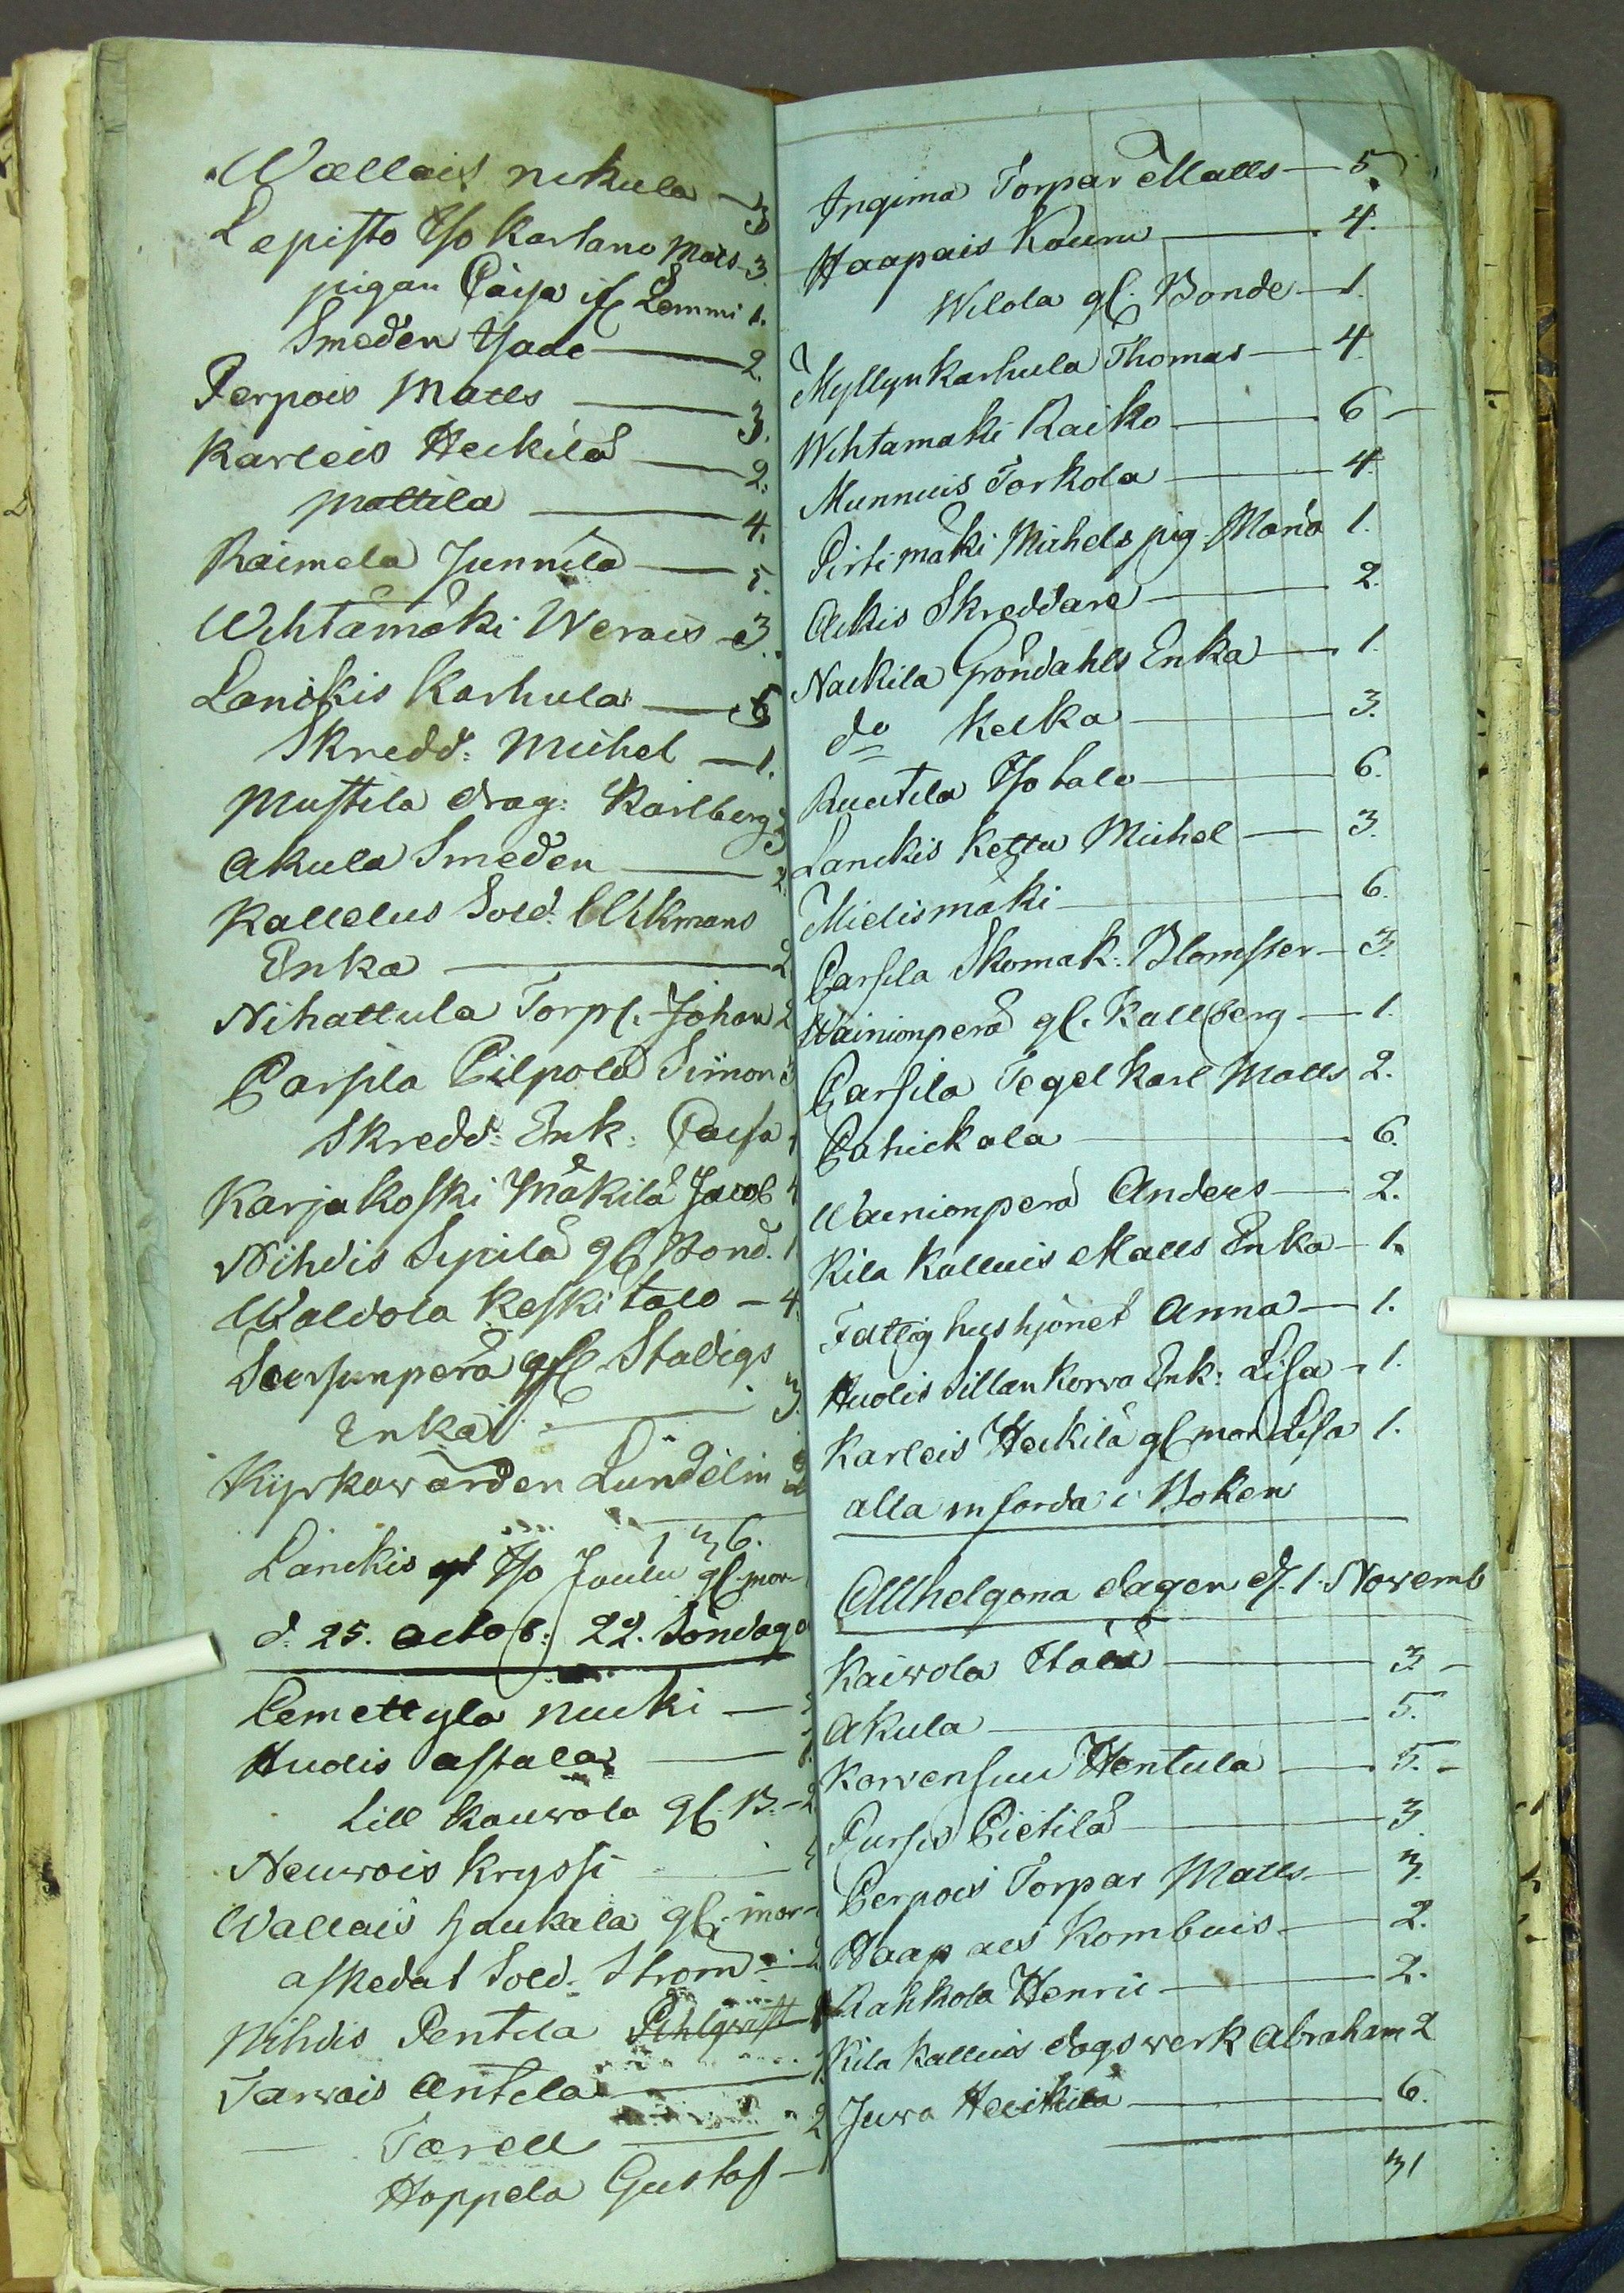 Wallais nikula — 3
Lepisto Iso Kartano Mats 3.
pigan Caisa if Lemmi 1.
Smeden Isaac — 2.
Perpois Matts — 3.
Karleis Heikilä — 2.
Mattila — 4.
Raimela Junnila — 5.
Wihtamäki Werais — 3.
Lanckis Karhula —
Skredd: Michel — 1.
Mustila drag: Karlberg 3
Akula Smeden — 2.
Kallelus Sold:
Enka — 2
Nihattula Torp. Johan 2
Carsila Pilpola Simon 3
Skredd: Enk: Caisa 1
Karjakoski Mäkilä Jacob 4
Nihdis Sepilä gl Bond. 1
Waldola Keskitalo — 4.
gl Stadigs
Enka — 3.
Kyrkowärden Lundelin 2
136.
Lanckis Iso Joulu gl mor —
d. 25. Octob: 22. Söndag
Cemettyla nucki —
Hudis astala —
Lill Kauwola gl. B. — 2
Neuwois Kryssi —
Wallais haukala gl. mor —
afskedat Sold. Ström — 2
Nihdis Pentila 1
Sarwais Antila — 1.
— Tarell — 2
Hoppela Gustaf — 1
Ingima Torpar Matts — 5.
Haapais Kauru — 4.
Wilola gl. Bonde — 1.
Myllynkarhula Thomas — 4.
Wihtamäki Raiko — 6 —
Munnuis Torkola — 4.
Pirtimäki Michels pig Maria 1.
Ackis Skreddare — 2.
Nackila Gröndahls Enka — 1.
do Kelka — 3.
Ruutila Iso talo — 6.
Lanckis Kettu Michel — 3.
Mielismäki — 6.
Carsila Skomak. Blomster — 3.
Wainionperä gl. Kallberg — 1.
Carsila Tegelkarl Matts 2.
Cahickala — 6.
Wainionperä Anders — 2.
Kila Kalluis Matts Enka — 1.
Fattighushjonet Anna — 1.
Hudis Sillankorva Enk: Lisa — 1.
Karleis Heikilä gl mor Lisa 1.
alla införda i Boken
Allhelgona dagen d. 1. Novemb
Kaiwola Itälä — 3. —
Akula — 5.
Korvensuu Hentula — 5. —
Pursis Pietilä — 3
Perpois Torpar Matts — 3.
Haapaes Kombuis — 2.
Rahkola Henric — 2.
Kila Kalluis dagswerk Abraham 2
Juva Heikila — 6.
31